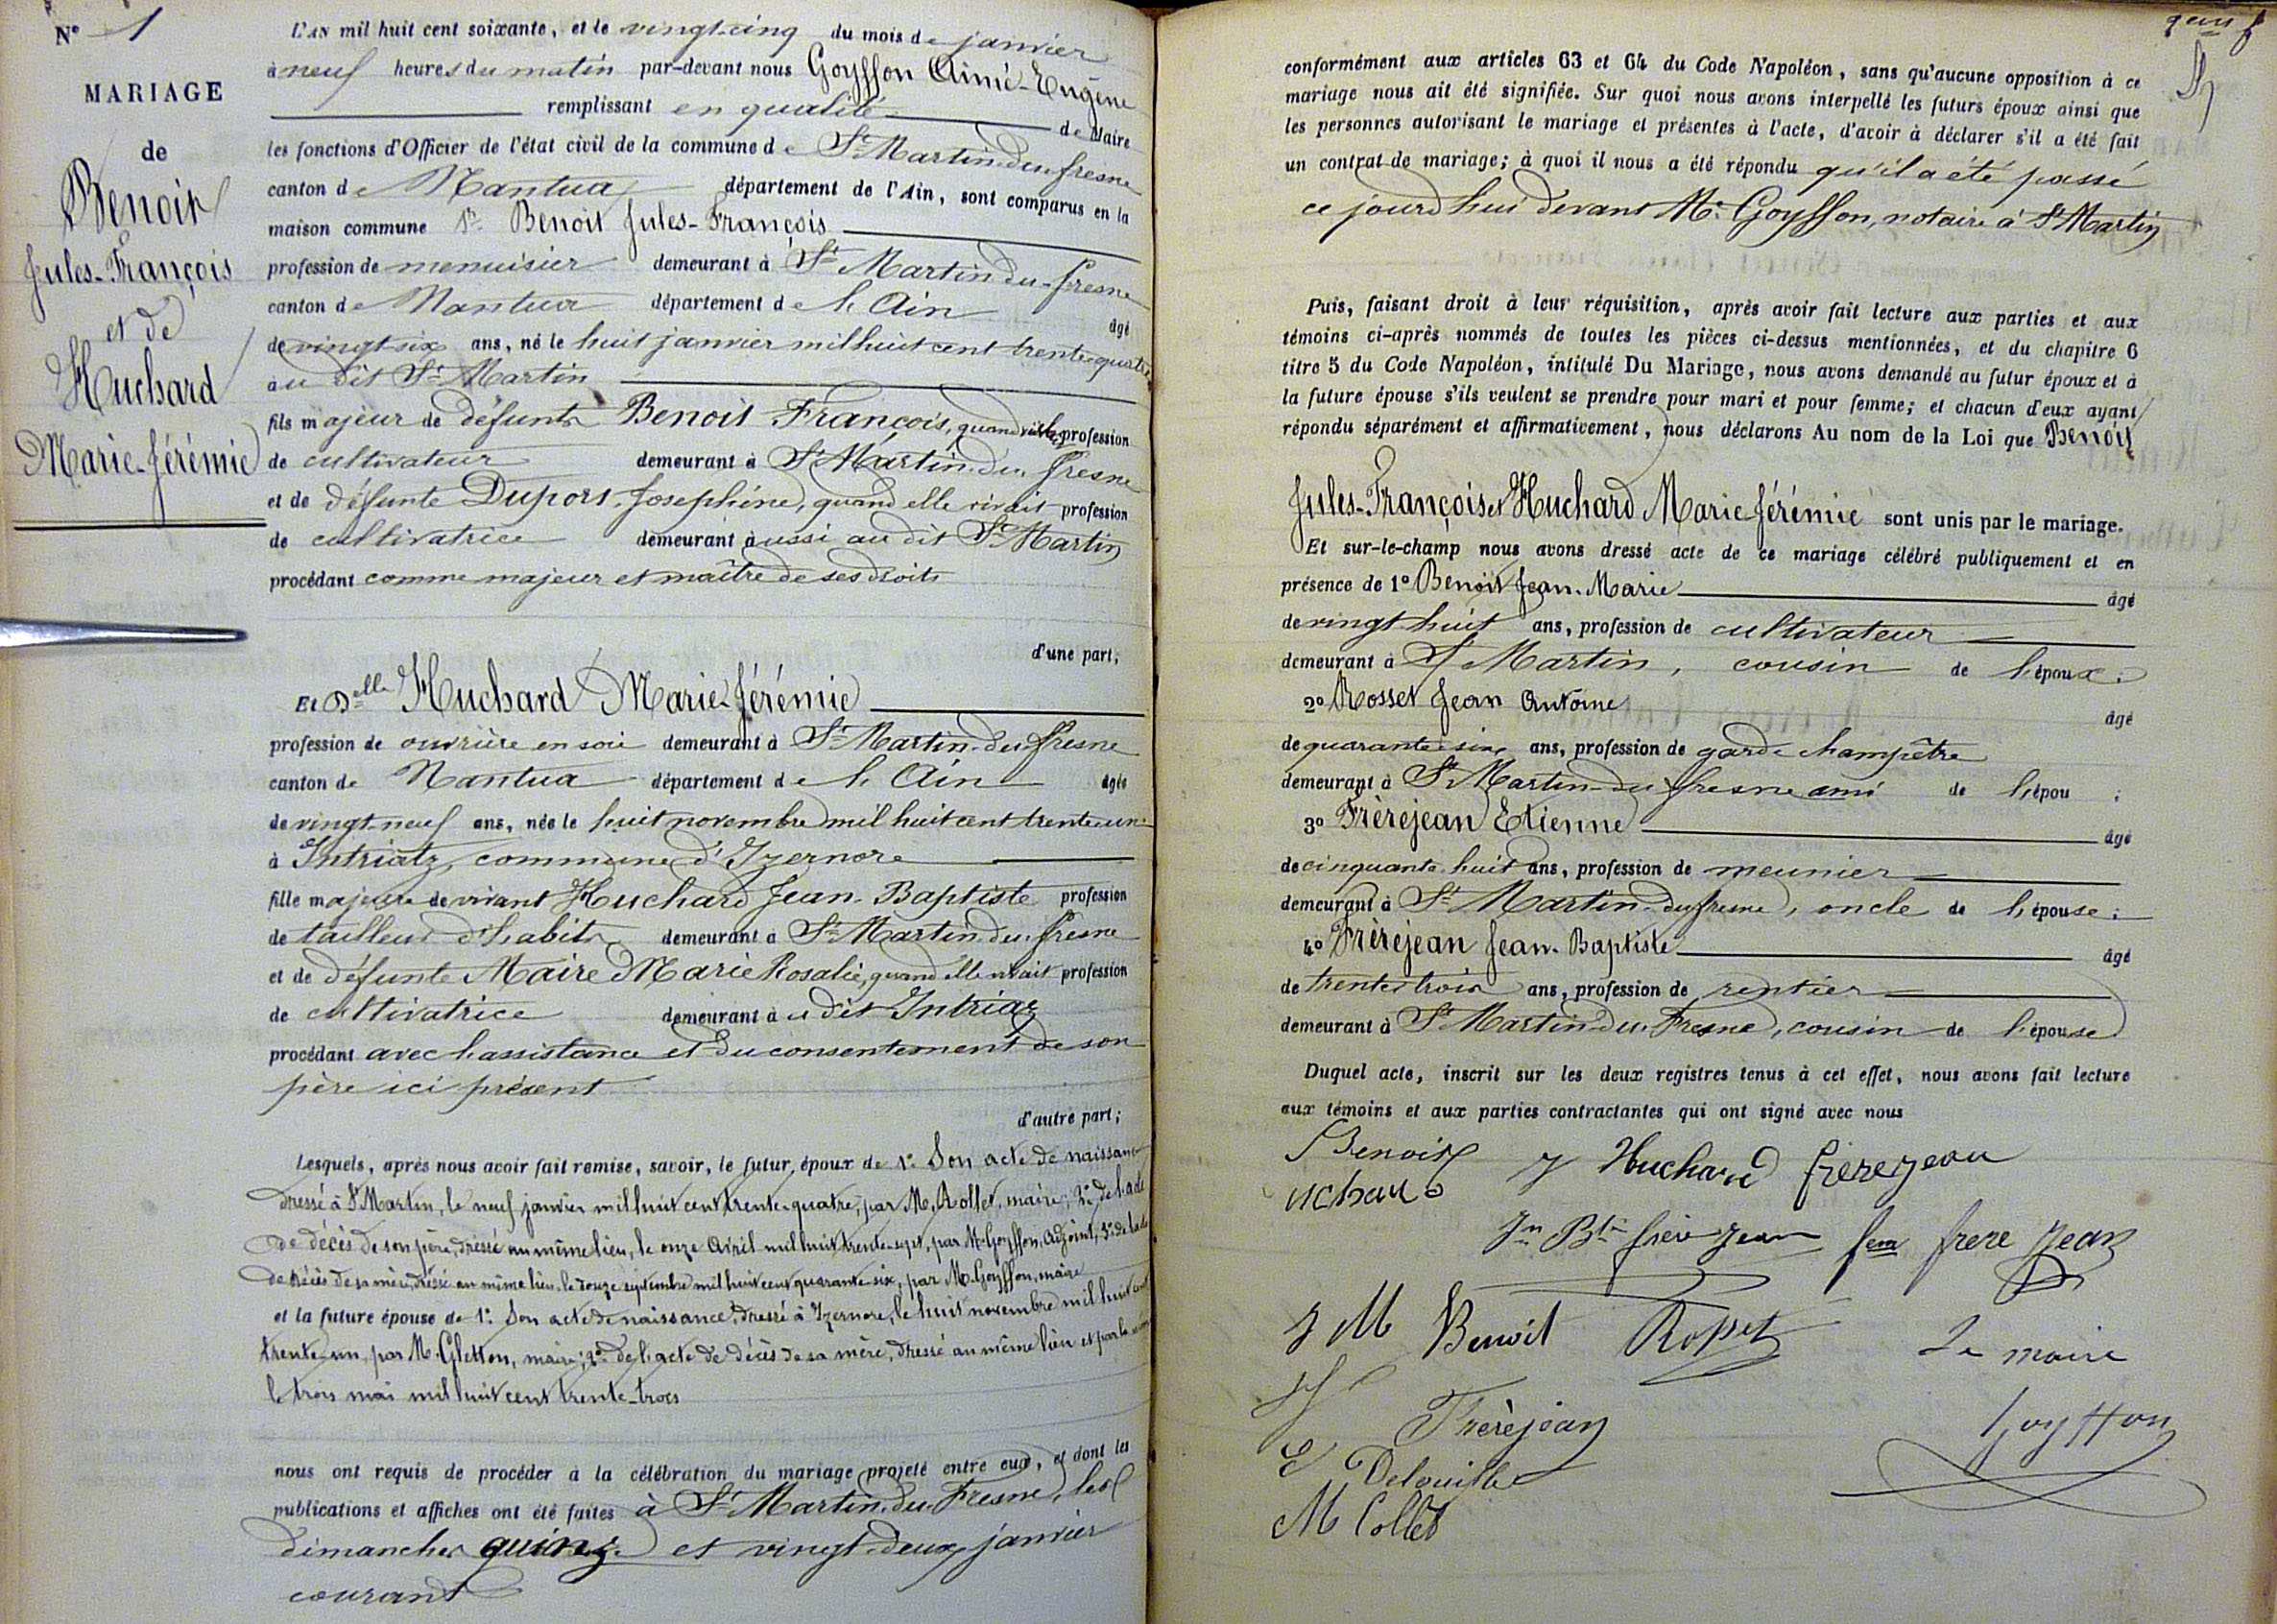 N° 1
MARIAGE
de
Benoit
Jules-François
et de
Huchard
Marie-Jérémie
L'AN mil huit cent soixante, et le vingt-cinq du mois de janvier
à neuf heures du matin par-devant nous Goyffon Aimé-Eugène
remplissant en qualité de Maire
les fonctions d'Officier de l'état civil de la commune de St Martin-du-fresne
canton de Nantua département de l'Ain, sont comparus en la
maison commune Sr Benoit Jules-François
profession de menuisier demeurant à St Martin-du-fresne
canton de Nantua département de l'Ain
âgé
de vingt six ans, né le huit janvier mil huit cent trente-quatre
au dit St Martin
fils majeur de défunts Benoit François, quand vivait profession
de cultivateur demeurant à St Martin-du-fresne
et de défunte Duport Josephine, quand elle vivait profession
de cultivatrice demeurant aussi au dit St Martin
procédant comme majeur et maître de ses droits
d'une part;
Et Delle Huchard Marie-Jérémie
profession de ouvrière en soie demeurant à St Martin-du-fresne
canton de Nantua département de l'Ain âgée
de vingt-neuf ans, née le huit novembre mil huit cent trente-un
à Intriatz, commune d'Izernore
fille majeure de vivant Huchard Jean-Baptiste profession
de tailleur d'habits demeurant à St Martin-du-fresne
et de défunte Maire Marie Rosalie, quand elle vivait profession
de cultivatrice demeurant au dit Intriaz
procédant avec l'assistance et du consentement de son
père ici présent
d'autre part;
Lesquels, après nous avoir fait remise, savoir, le futur époux de 1° Son acte de naissance
dressé à St Martin, le neuf janvier mil huit cent trente-quatre, par M. Rollet, maire; 2° de l'acte
de décès de son père, dressé au même lieu, le onze Avril mil huit trente-sept, par M. Goyffon, Adjoint, 3° de l'acte
de décès de sa mère, dressé au même lieu le douze septembre mil huit cent quarante-six, par M. Goyffon, maire
et la future épouse de 1° Son acte de naissance, dressé à Izernore, le huit novembre mil huit cent
trente-un, par M. Gletton, maire; 2° de l'acte de décès de sa mère, dressé au même lieu et par le
le trois mai mil huit cent trente-trois
nous ont requis de procéder à la célébration du mariage projeté entre eux, et dont les
publications et affiches ont été faites à St Martin-du-Fresne, les
dimanches quinze et vingt-deux janvier
courant
conformément aux articles 63 et 64 du Code Napoléon, sans qu'aucune opposition à ce
mariage nous ait été signifiée. Sur quoi nous avons interpellé les futurs époux ainsi que
les personnes autorisant le mariage et présentes à l'acte, d'avoir à déclarer s'il a été fait
un contrat de mariage; à quoi il nous a été répondu qu'il a été passé
ce jourd'hui devant Me Goyffon, notaire à St Martin
Puis, faisant droit à leur réquisition, après avoir fait lecture aux parties et aux
témoins ci-après nommés de toutes les pièces ci-dessus mentionnées, et du chapitre 6
titre 5 du Code Napoléon, intitulé Du Mariage, nous avons demandé au futur époux et à
la future épouse s'ils veulent se prendre pour mari et pour femme; et chacun d'eux ayant
répondu séparément et affirmativement, nous déclarons Au nom de la Loi que Benoit
Jules-François et Huchard Marie Jérémie sont unis par le mariage.
Et sur-le-champ nous avons dressé acte de ce mariage célébré publiquement et en
présence de 1° Benoit Jean-Marie âgé
de vingt huit ans, profession de cultivateur
demeurant à St Martin, cousin de l'époux;
2° Rosset Jean Antoine
âgé
de quarante-six ans, profession de garde champêtre
demeurant à St Martin-du fresne ami de l'épou ;
3° Frèrejean Etienne âgé
de cinquante-huit ans, profession de meunier
demeurant à St Martin-du fresne, oncle de l'épouse;
4° Frèrejean Jean-Baptiste âgé
de trente-trois ans, profession de rentier
demeurant à St Martin-du-Fresne, cousin de l'épouse
Duquel acte, inscrit sur les deux registres tenus à cet effet, nous avons fait lecture
aux témoins et aux parties contractantes qui ont signé avec nous
Benoit J Huchard frèrejean
uchard
Jn Bte frère jean fem frere Jean
J M Benoit Rosset Le maire
Frèrejean Goyffon
M Collet